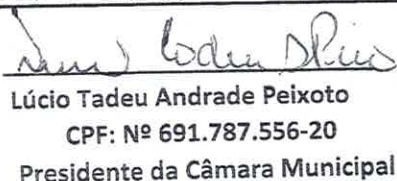 Lúcio Tadeu Andrade Peixoto
CPF: Nº 691.787.556-20
Presidente da Câmara Municipal